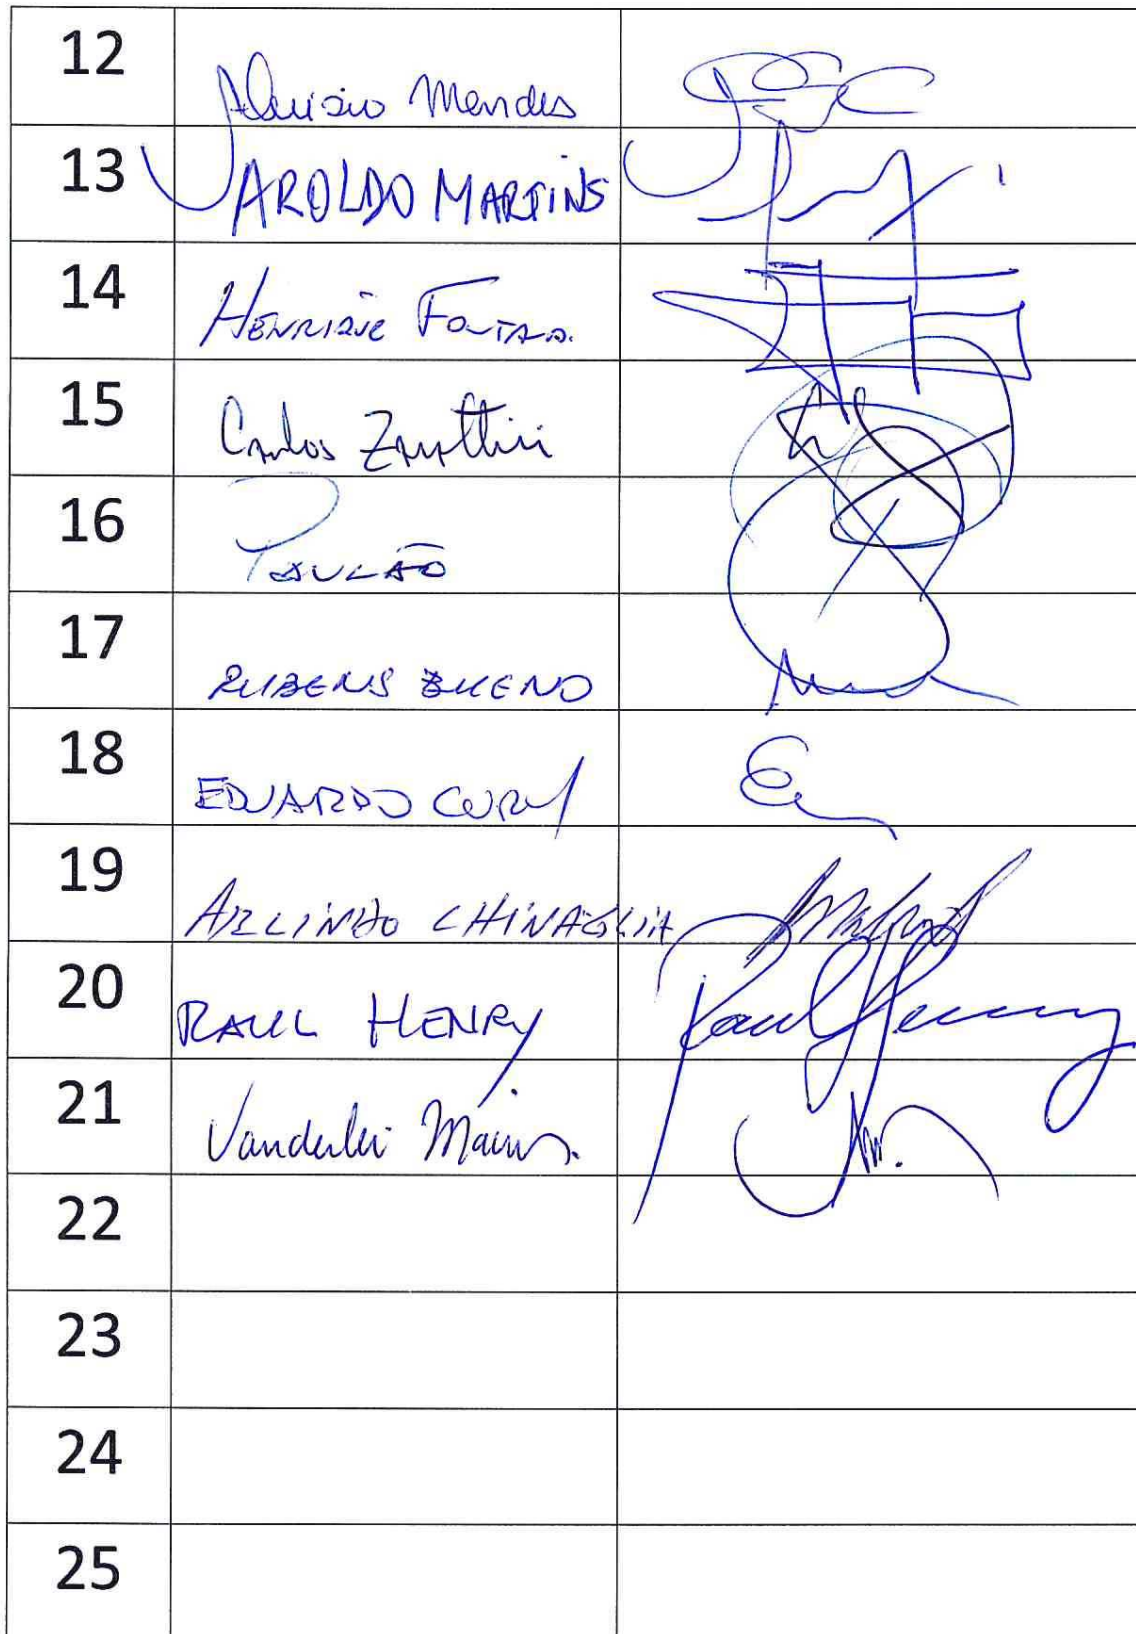 12 Aluisio Mendes PSC
13 AROLDO MARTINS
14 HENRIQUE FONTANA
15 Carlos Zarattini
16 PAULÃO
17 RUBENS BUENO
18 EDUARDO CURY
19 ARLINDO CHINAGLIA
20 RAUL HENRY Raul Henry
21 Vanderlei Macris
22
23
24
25